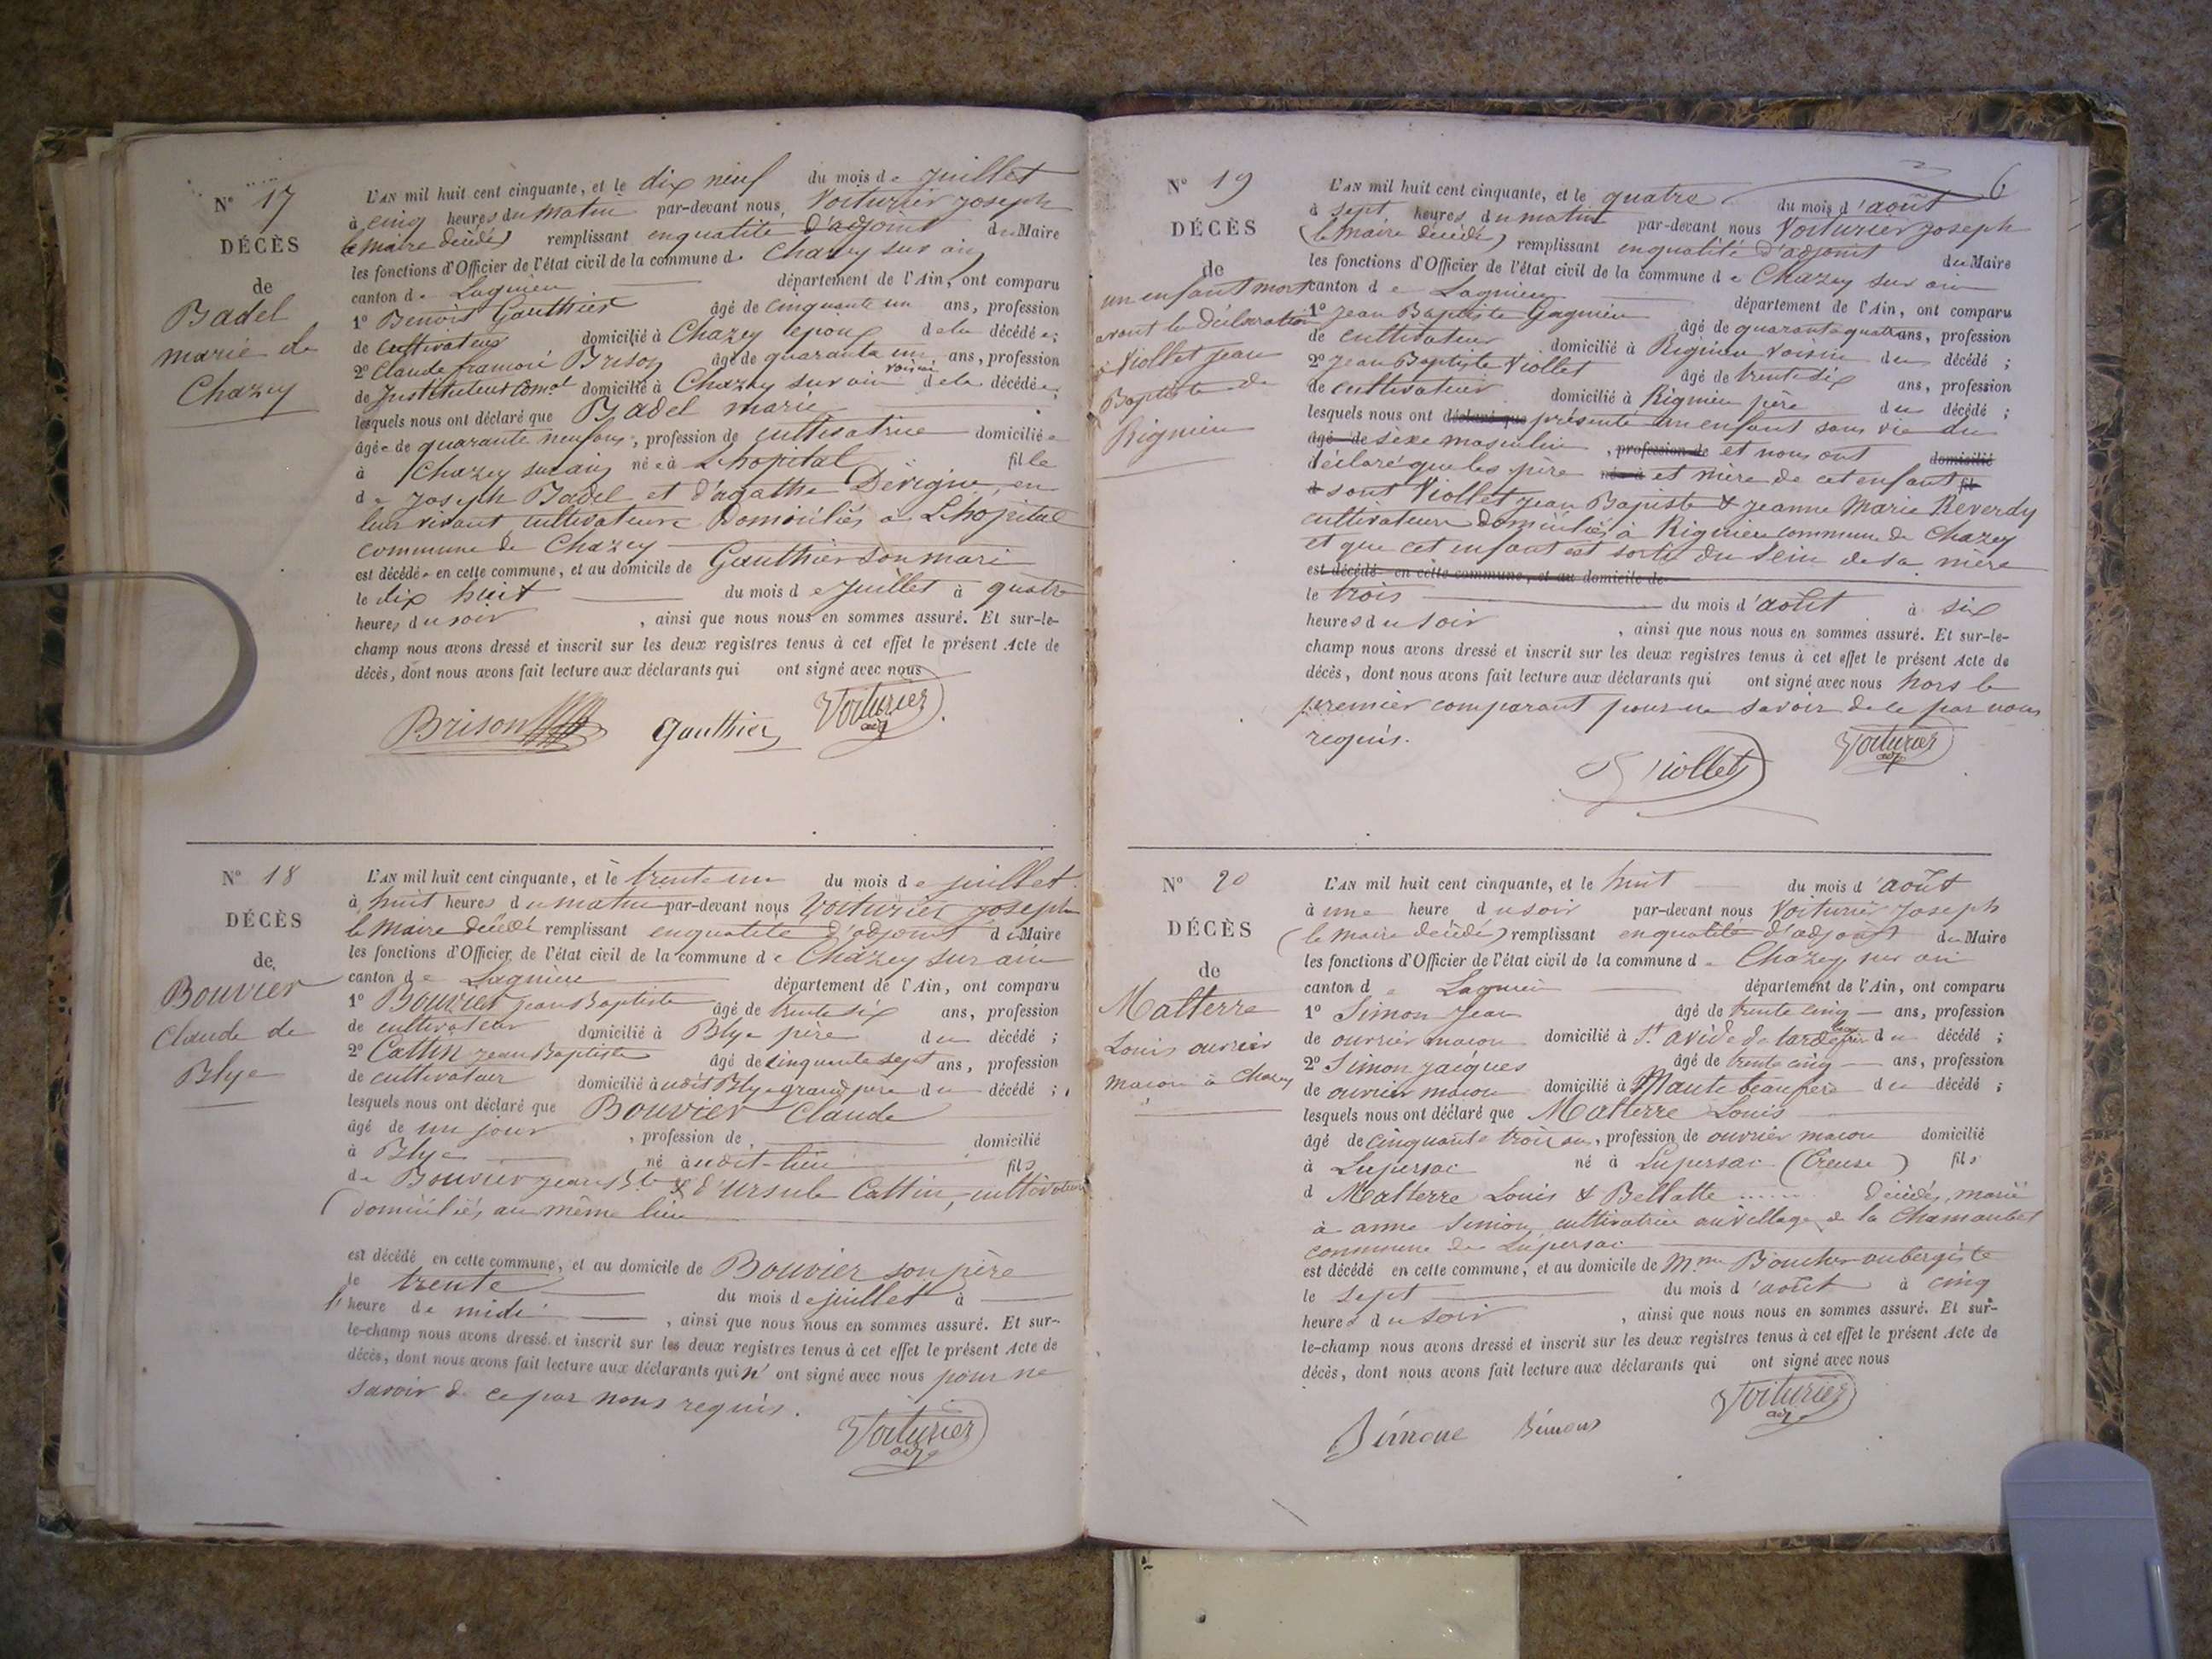 N° 17
DÉCÈS
de
Badel
marie de
Chazey
L'AN mil huit cent cinquante, et le dix neuf du mois de Juillet
à cinq heures du Matin par-devant nous, Voiturier Joseph
le Maire décédé) remplissant en qualité d'adjoint du Maire
les fonctions d'Officier de l'état civil de la commune de Chazey sur ain
canton de Lagnieu département de l'Ain, ont comparu
1° Benoit Gauthier âgé de Cinquante un ans, profession
de Cultivateur domicilié à Chazey époux de la décédée;
2° Claude françois Brison âgé de quarante un ans, profession
de Instituteur Com.al domicilié à Chazey sur ain voisin de la décédée;
lesquels nous ont déclaré que Badel marie
âgée de quarante neuf ans, profession de cultivatrice domiciliée
à Chazey sur ain née à Lhopital fille
de Joseph Badel et d'agathe Dévigne, en
leur vivant cultivateurs Domiciliés à Lhopital
commune de Chazey
est décédée en cette commune, et au domicile de Gauthier son mari
le dix huit du mois de Juillet à quatre
heures du soir , ainsi que nous nous en sommes assuré. Et sur-le-
champ nous avons dressé et inscrit sur les deux registres tenus à cet effet le présent Acte de
décès, dont nous avons fait lecture aux déclarants qui ont signé avec nous
Brison Gauthier Voiturier
adj
N° 18
DÉCÈS
de
Bouvier
Claude de
Blye
L'AN mil huit cent cinquante, et le trente un du mois de juillet
à huit heures du matin par-devant nous Voiturier Joseph
le Maire décédé remplissant en qualité d'adjoint du Maire
les fonctions d'Officier de l'état civil de la commune de Chazey sur ain
canton de Lagnieu département de l'Ain, ont comparu
1° Bouvier jean Baptiste âgé de trente six ans, profession
de cultivateur domicilié à Blye père du décédé ;
2° Cattin jean Baptiste âgé de cinquante sept ans, profession
de cultivateur domicilié à udit Blye grand père du décédé ;
lesquels nous ont déclaré que Bouvier Claude
âgé de un jour , profession de domicilié
à Blye né à udit-lieu fils
de Bouvier jean Bte & d'Ursule Cattin, cultivateurs
domiciliés au même lieu
est décédé en cette commune, et au domicile de Bouvier son père
le trente du mois de juillet à
l'heure de midi , ainsi que nous nous en sommes assuré. Et sur-
le-champ nous avons dressé et inscrit sur les deux registres tenus à cet effet le présent Acte de
décès, dont nous avons fait lecture aux déclarants qui n' ont signé avec nous pour ne
savoir de ce par nous requis.
Voiturier
adj
6
N° 19
DÉCÈS
de
un enfant mort
avant la déclaration
à Viollet jean
Baptiste de
Rignieu
L'AN mil huit cent cinquante, et le quatre du mois d'août
à sept heures du matin par-devant nous Voiturier Joseph
(le Maire décédé) remplissant en qualité d'adjoint du Maire
les fonctions d'Officier de l'état civil de la commune de Chazey sur ain
canton de Lagnieu département de l'Ain, ont comparu
1° Jean Baptiste Gagnieu âgé de quarante quatre ans, profession
de cultivateur domicilié à Rignieu voisin du décédé ;
2° Jean Baptiste Viollet âgé de trente six ans, profession
de cultivateur domicilié à Rignieu père du décédé ;
lesquels nous ont déclaré que présenté un enfant sans vie du
âgé de sexe masculin , profession de et nous ont domicilié
déclaré que les père né à et mère de cet enfant fil
d sont Viollet jean Baptiste & Jeanne Marie Reverdy
cultivateurs domiciliés à Rignieu commune de Chazey
et que cet enfant est sorti du sein de sa mère
est décédé en cette commune, et au domicile de
le trois du mois d'août à six
heures du soir , ainsi que nous nous en sommes assuré. Et sur-le-
champ nous avons dressé et inscrit sur les deux registres tenus à cet effet le présent Acte de
décès, dont nous avons fait lecture aux déclarants qui ont signé avec nous hors le
premier comparant pour ne savoir de ce par nous
requis.
Viollet Voiturier
adj
N° 20
DÉCÈS
de
Malterre
Louis ouvrier
macon à Chazey
L'AN mil huit cent cinquante, et le huit du mois d'août
à une heure du soir par-devant nous Voiturier Joseph
(le maire décédé) remplissant en qualité d'adjoint du Maire
les fonctions d'Officier de l'état civil de la commune de Chazey sur ain
canton de Lagnieu département de l'Ain, ont comparu
1° Simon Jean âgé de trente cinq ans, profession
de ouvrier macon domicilié à St avide de tarde du décédé ;
2° Simon jacques âgé de trente cinq ans, profession
de ouvrier macon domicilié à Maute beau frère du décédé ;
lesquels nous ont déclaré que Malterre Louis
âgé de cinquante trois ans, profession de ouvrier macon domicilié
à Lupersac né à Lupersac (Creuse) fils
d Malterre Louis & Bellatte ...... décédés, marié
à anne Simon, cultivatrice au village de la Chamaubet
commune de Lupersac
est décédé en cette commune, et au domicile de Mme Boucher aubergiste
le sept du mois d'août à cinq
heures du soir , ainsi que nous nous en sommes assuré. Et sur-
le-champ nous avons dressé et inscrit sur les deux registres tenus à cet effet le présent Acte de
décès, dont nous avons fait lecture aux déclarants qui ont signé avec nous
Simone Simons Voiturier
adj